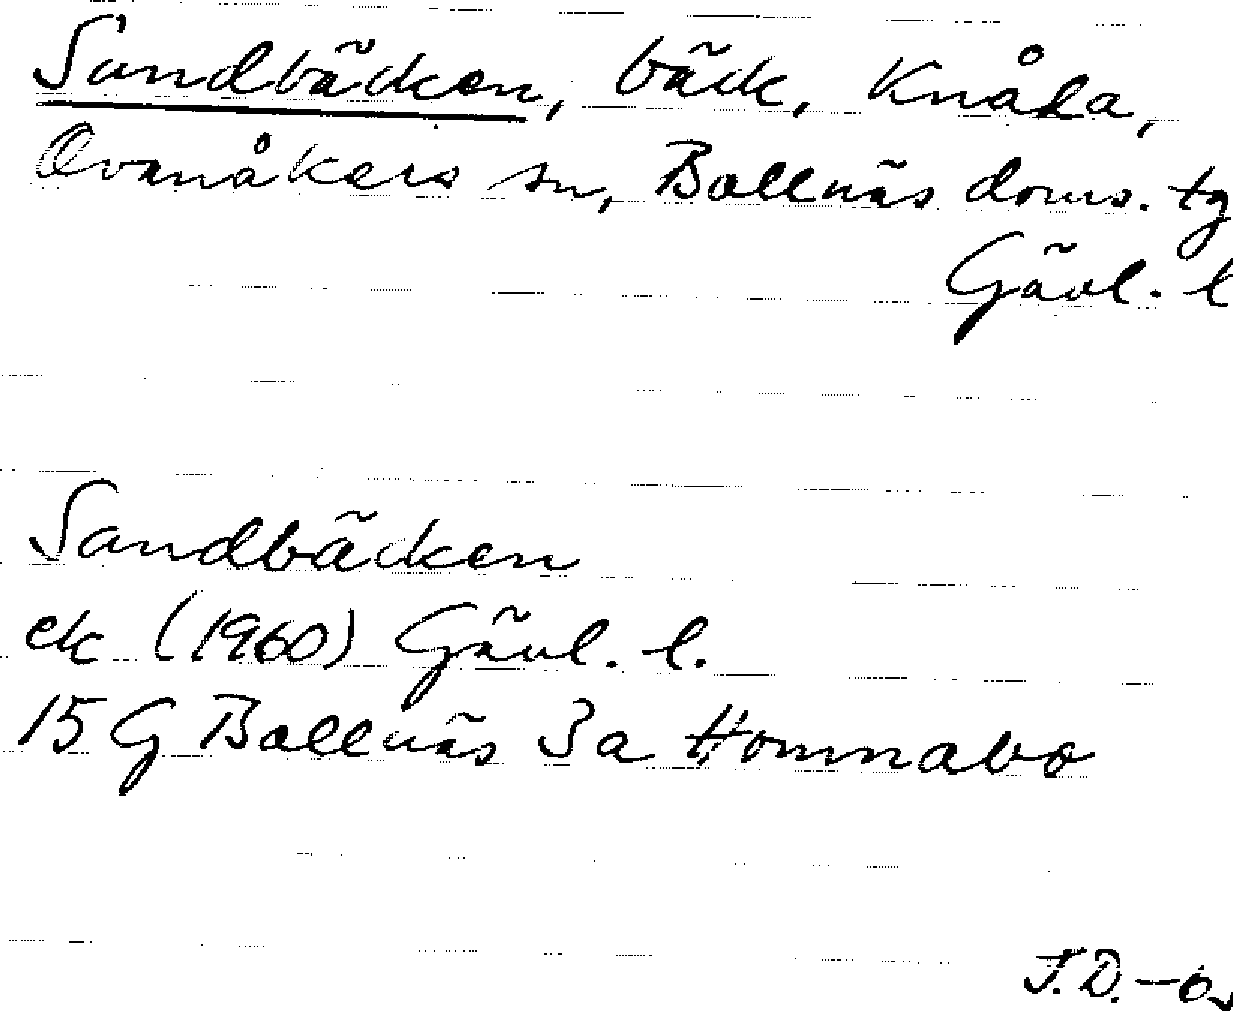 Sandbäcken, bäck, Knåda,
Ovanåkers sn, Bollnäs doms. tg
Gävl. l
Sandbäcken
ek (1960) Gävl. l.
15 G Bollnäs 3a Homnabo
J.D. -